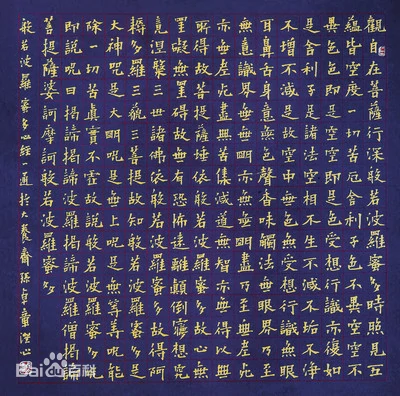 觀自在菩薩行深般若波羅蜜多時照見五
蘊皆空度一切苦厄舍利子色不異空空不
異色色即是空空即是色受想行識亦復如
是舍利子是諸法空相不生不滅不垢不淨
不增不減是故空中無色無受想行識無眼
耳鼻舌身意無色聲香味觸法無眼界乃至
無意識界無無明亦無無明盡乃至無老死
亦無老死盡無苦集滅道無智亦無得以無
所得故菩提薩埵依般若波羅蜜多故心無
罣礙無罣礙故無有恐怖遠離顛倒夢想究
竟涅槃三世諸佛依般若波羅蜜多故得阿
耨多羅三藐三菩提故知般若波羅蜜多是
大神咒是大明咒是無上咒是無等等咒能
除一切苦真實不虛故說般若波羅蜜多咒
即說咒曰揭諦揭諦波羅揭諦波羅僧揭諦
菩提薩婆訶摩訶般若波羅蜜多
般若波羅蜜多心經一通於大養齋
Bai百科